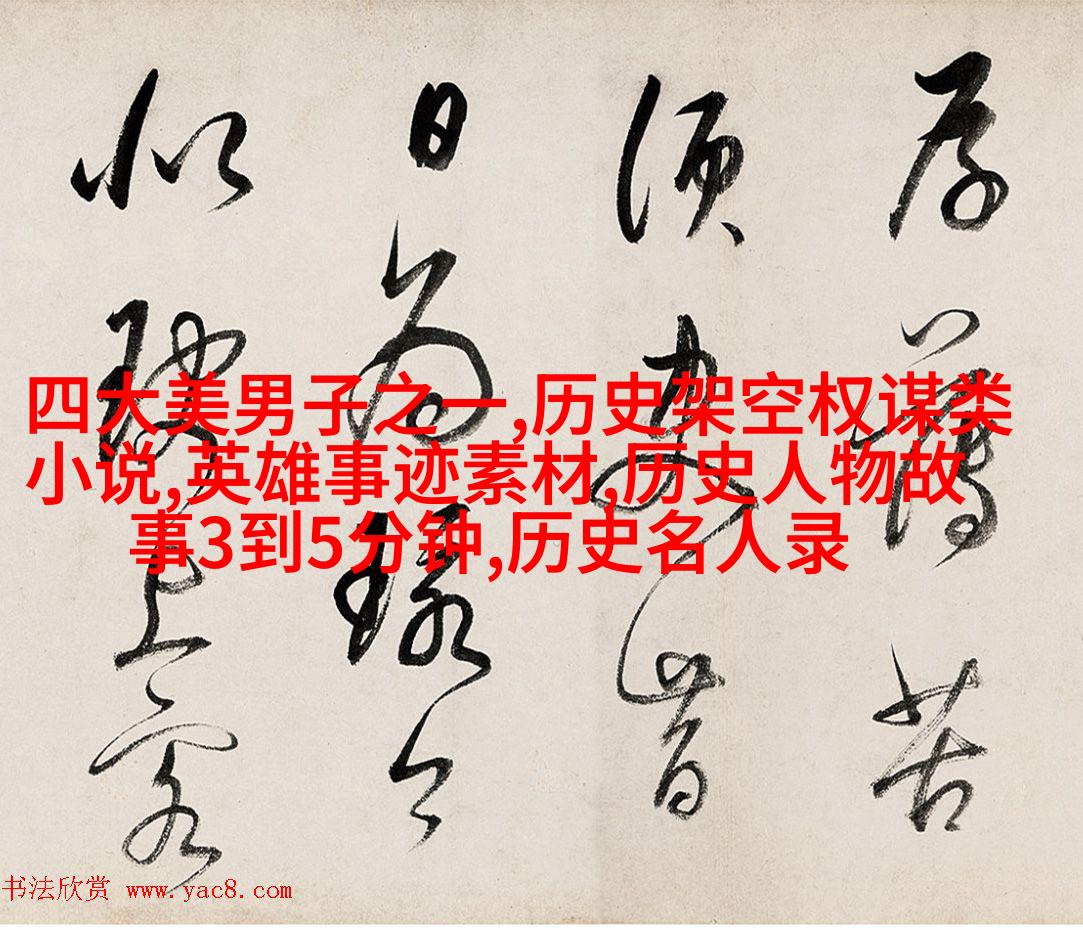 四大美男子之一,历史架空权谋类
小说,英雄事迹素材,历史人物故
事3到5分钟,历史名人录
薄苦
須
日為
上客
书法欣赏 www.yac8.com